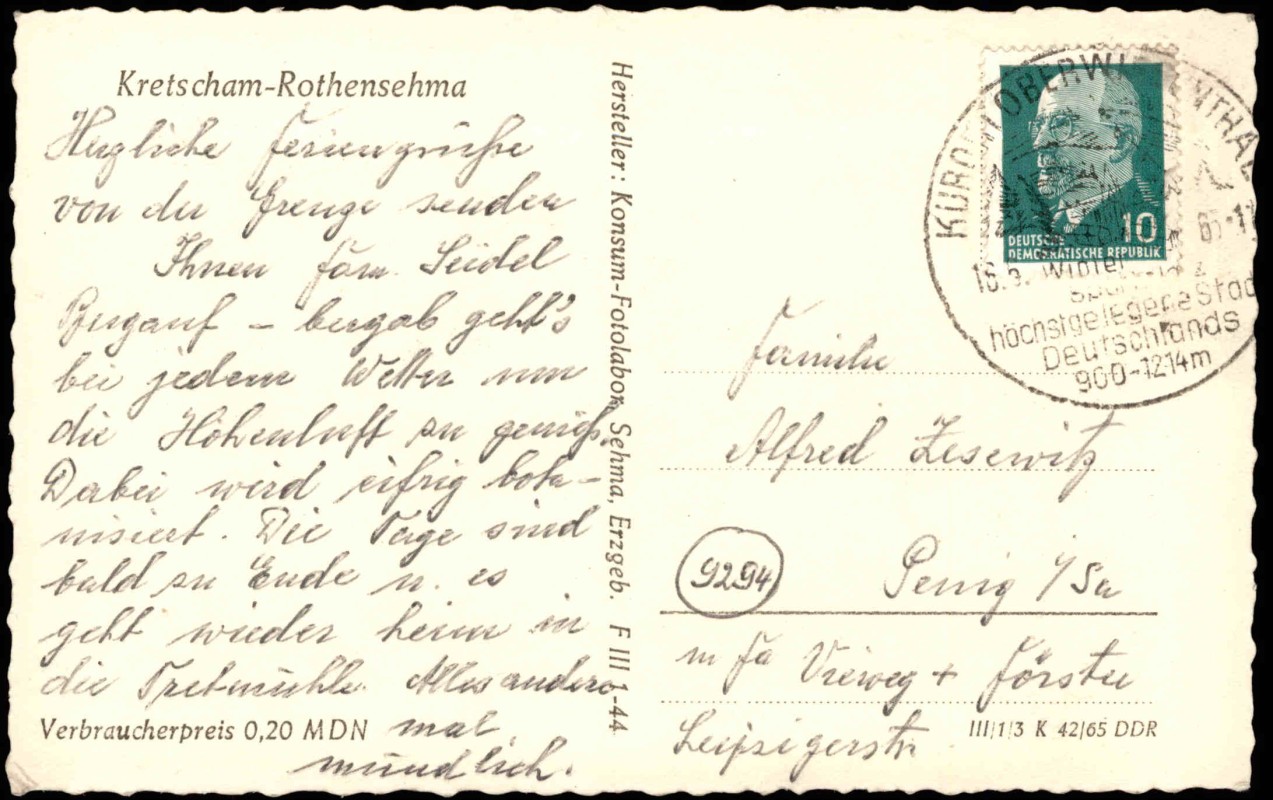 Kretscham-Rothensehma
Herzliche Feriengrüße
von der Grenze senden
Ihnen Fam. Seidel
Bergauf – bergab geht's
bei jedem Wetter um
die Höhenluft zu genieß.
Dabei wird eifrig bota-
nisiert. Die Tage sind
bald zu Ende u. es
geht wieder heim in
die Tretmühle. Alles andere
mal
mündlich.
Verbraucherpreis 0,20 MDN
Hersteller: Konsum-Fotolabor, Sehma, Erzgeb. F III 1-44
KURORT OBERWIESENTHAL
10
DEUTSCHE
DEMOKRATISCHE REPUBLIK
Winter
höchstgelegene Stadt
Deutschlands
900-1214m
Familie
Alfred Zesewitz
9294
Penig i/Sa
Fa Vieweg + Förster
Leipzigerstr
III/1/3 K 42/65 DDR